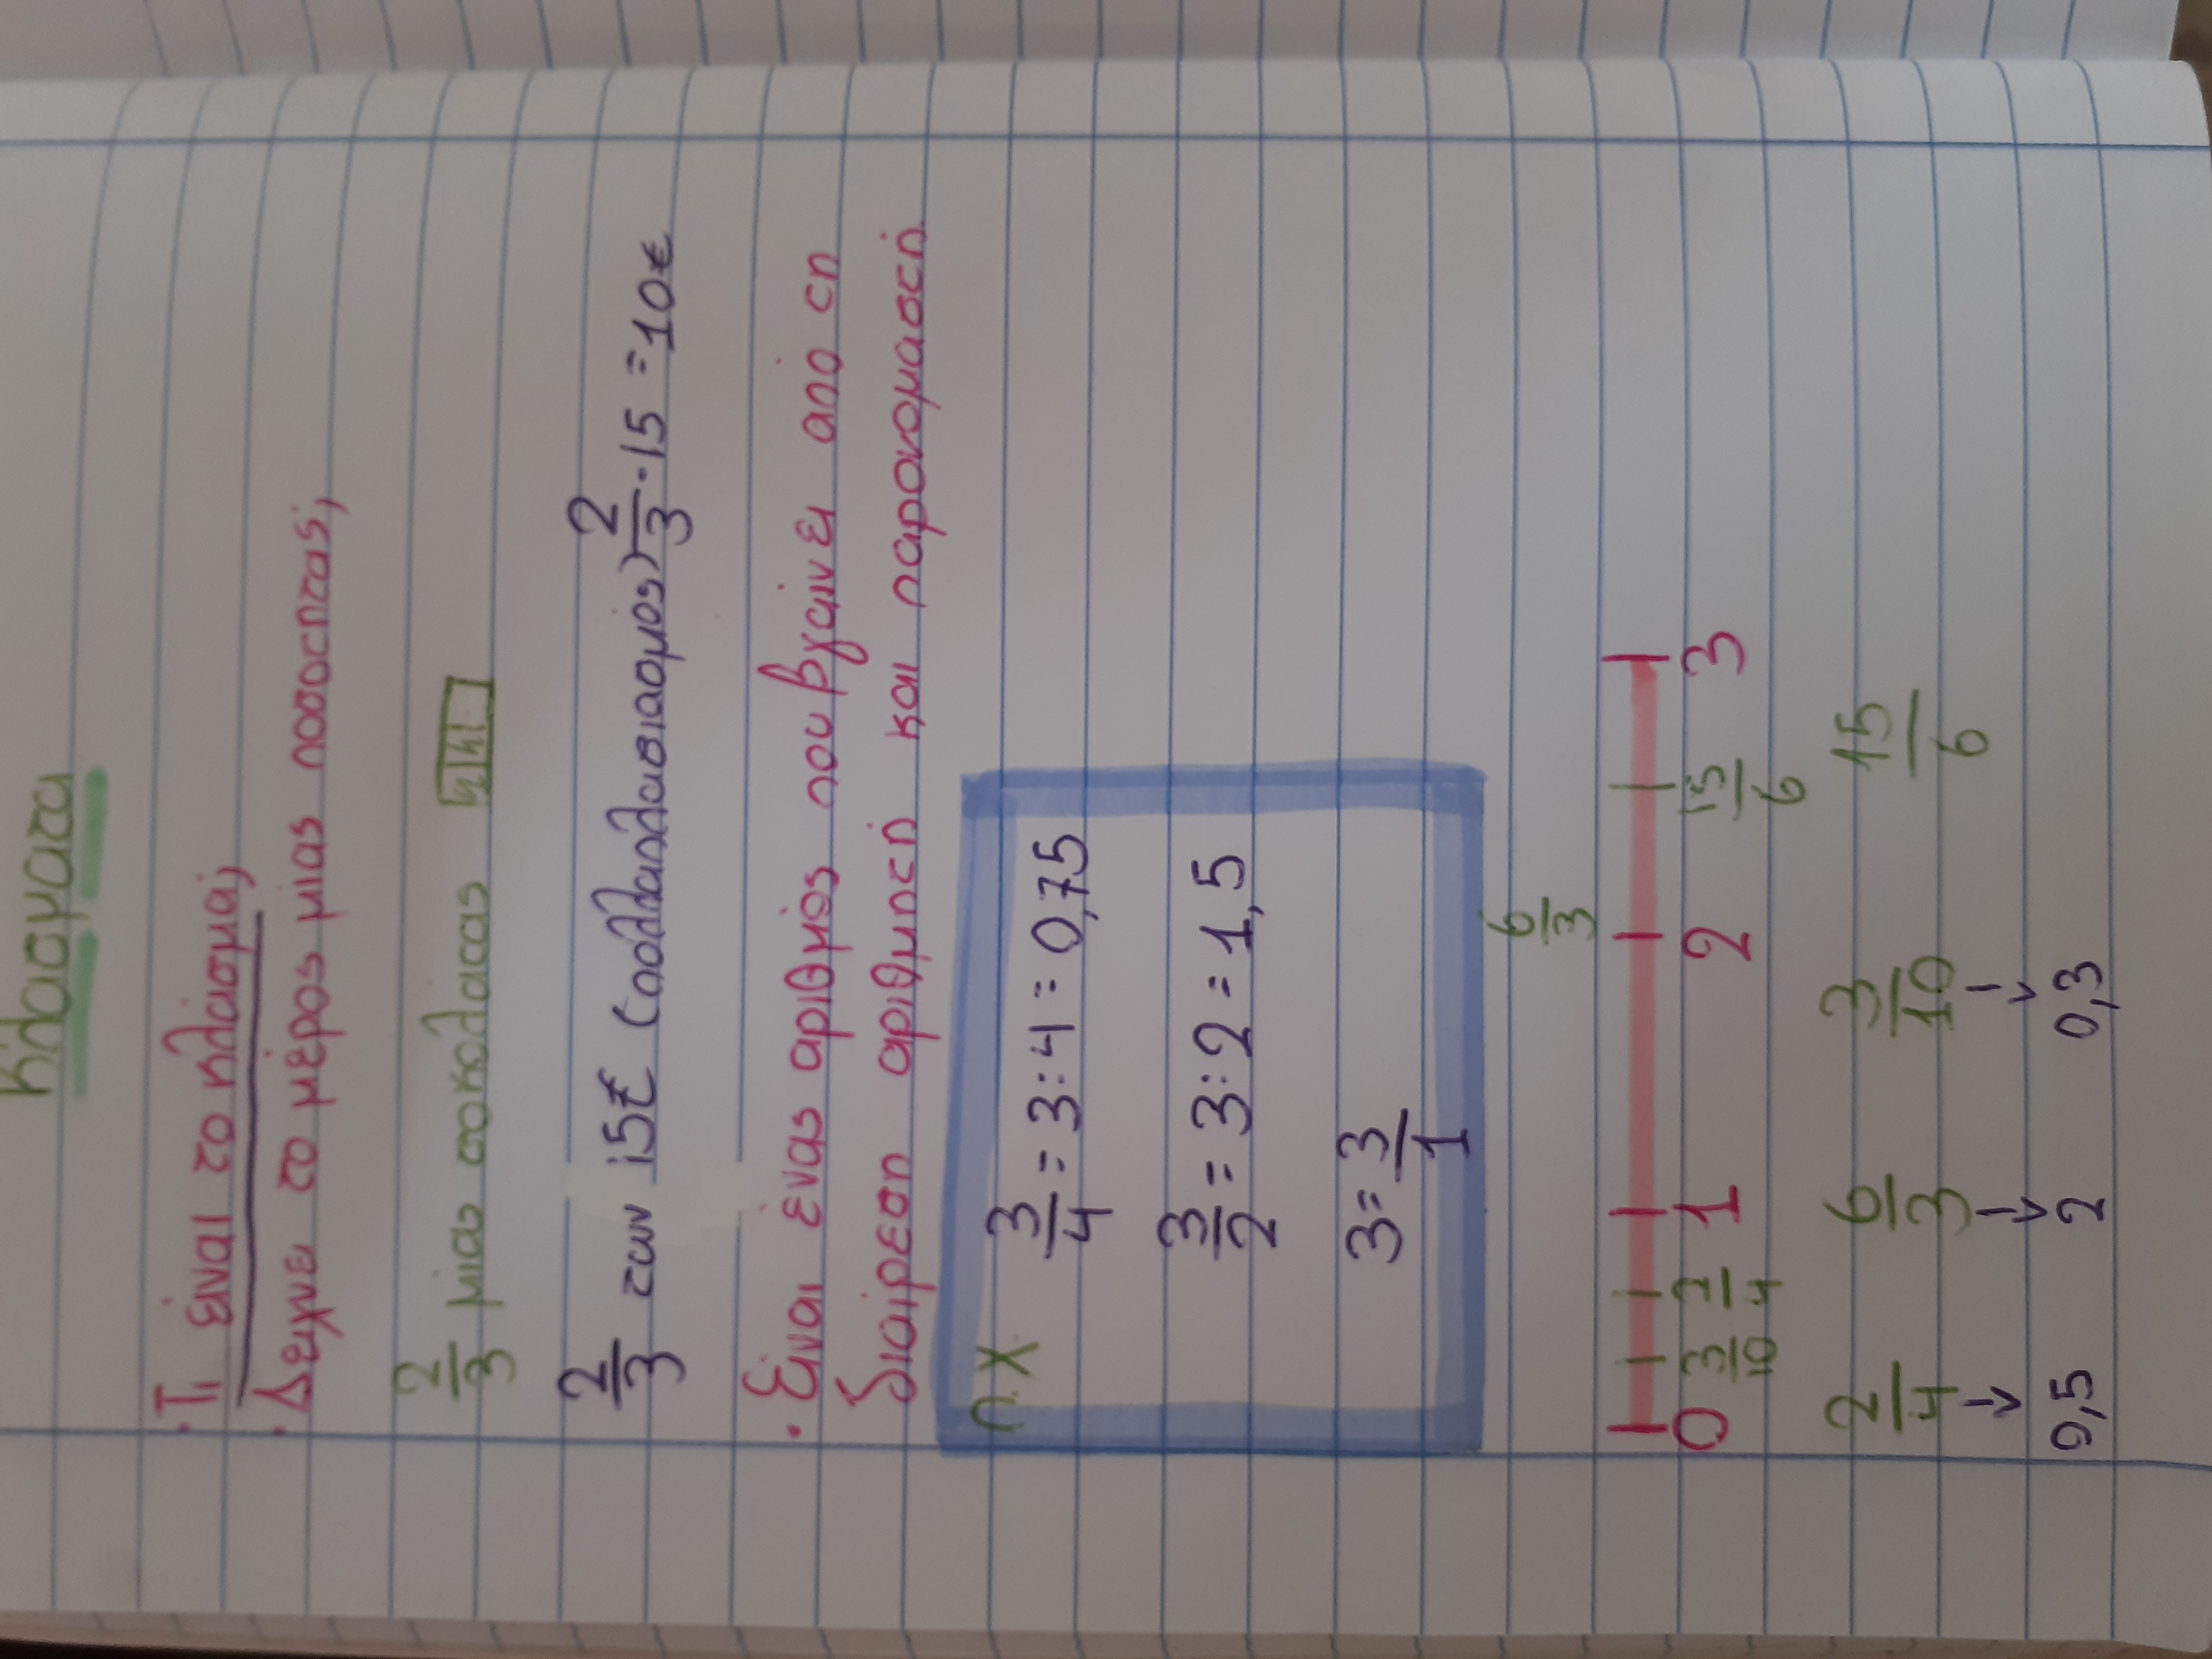 Κλάσματα
·Τι είναι το κλάσμα;
·Δειχνει το μέρος μιας ποσοτητας;
2/3 μιας σοκολάτας
2/3 των 15€ (πολλαπλασιασμός) 2/3 · 15 = 10€
·Είναι ένας αριθμός που βγαίνει απο τη
διαίρεση αριθμητή και παρονομαστή.
π.χ
3/4 = 3:4 = 0,75
3/2 = 3:2 = 1,5
3 = 3/1
6/3
0 3/10 2/4 1 2 15/6 3
2/4 6/3 3/10 15/6
0,5 2 0,3